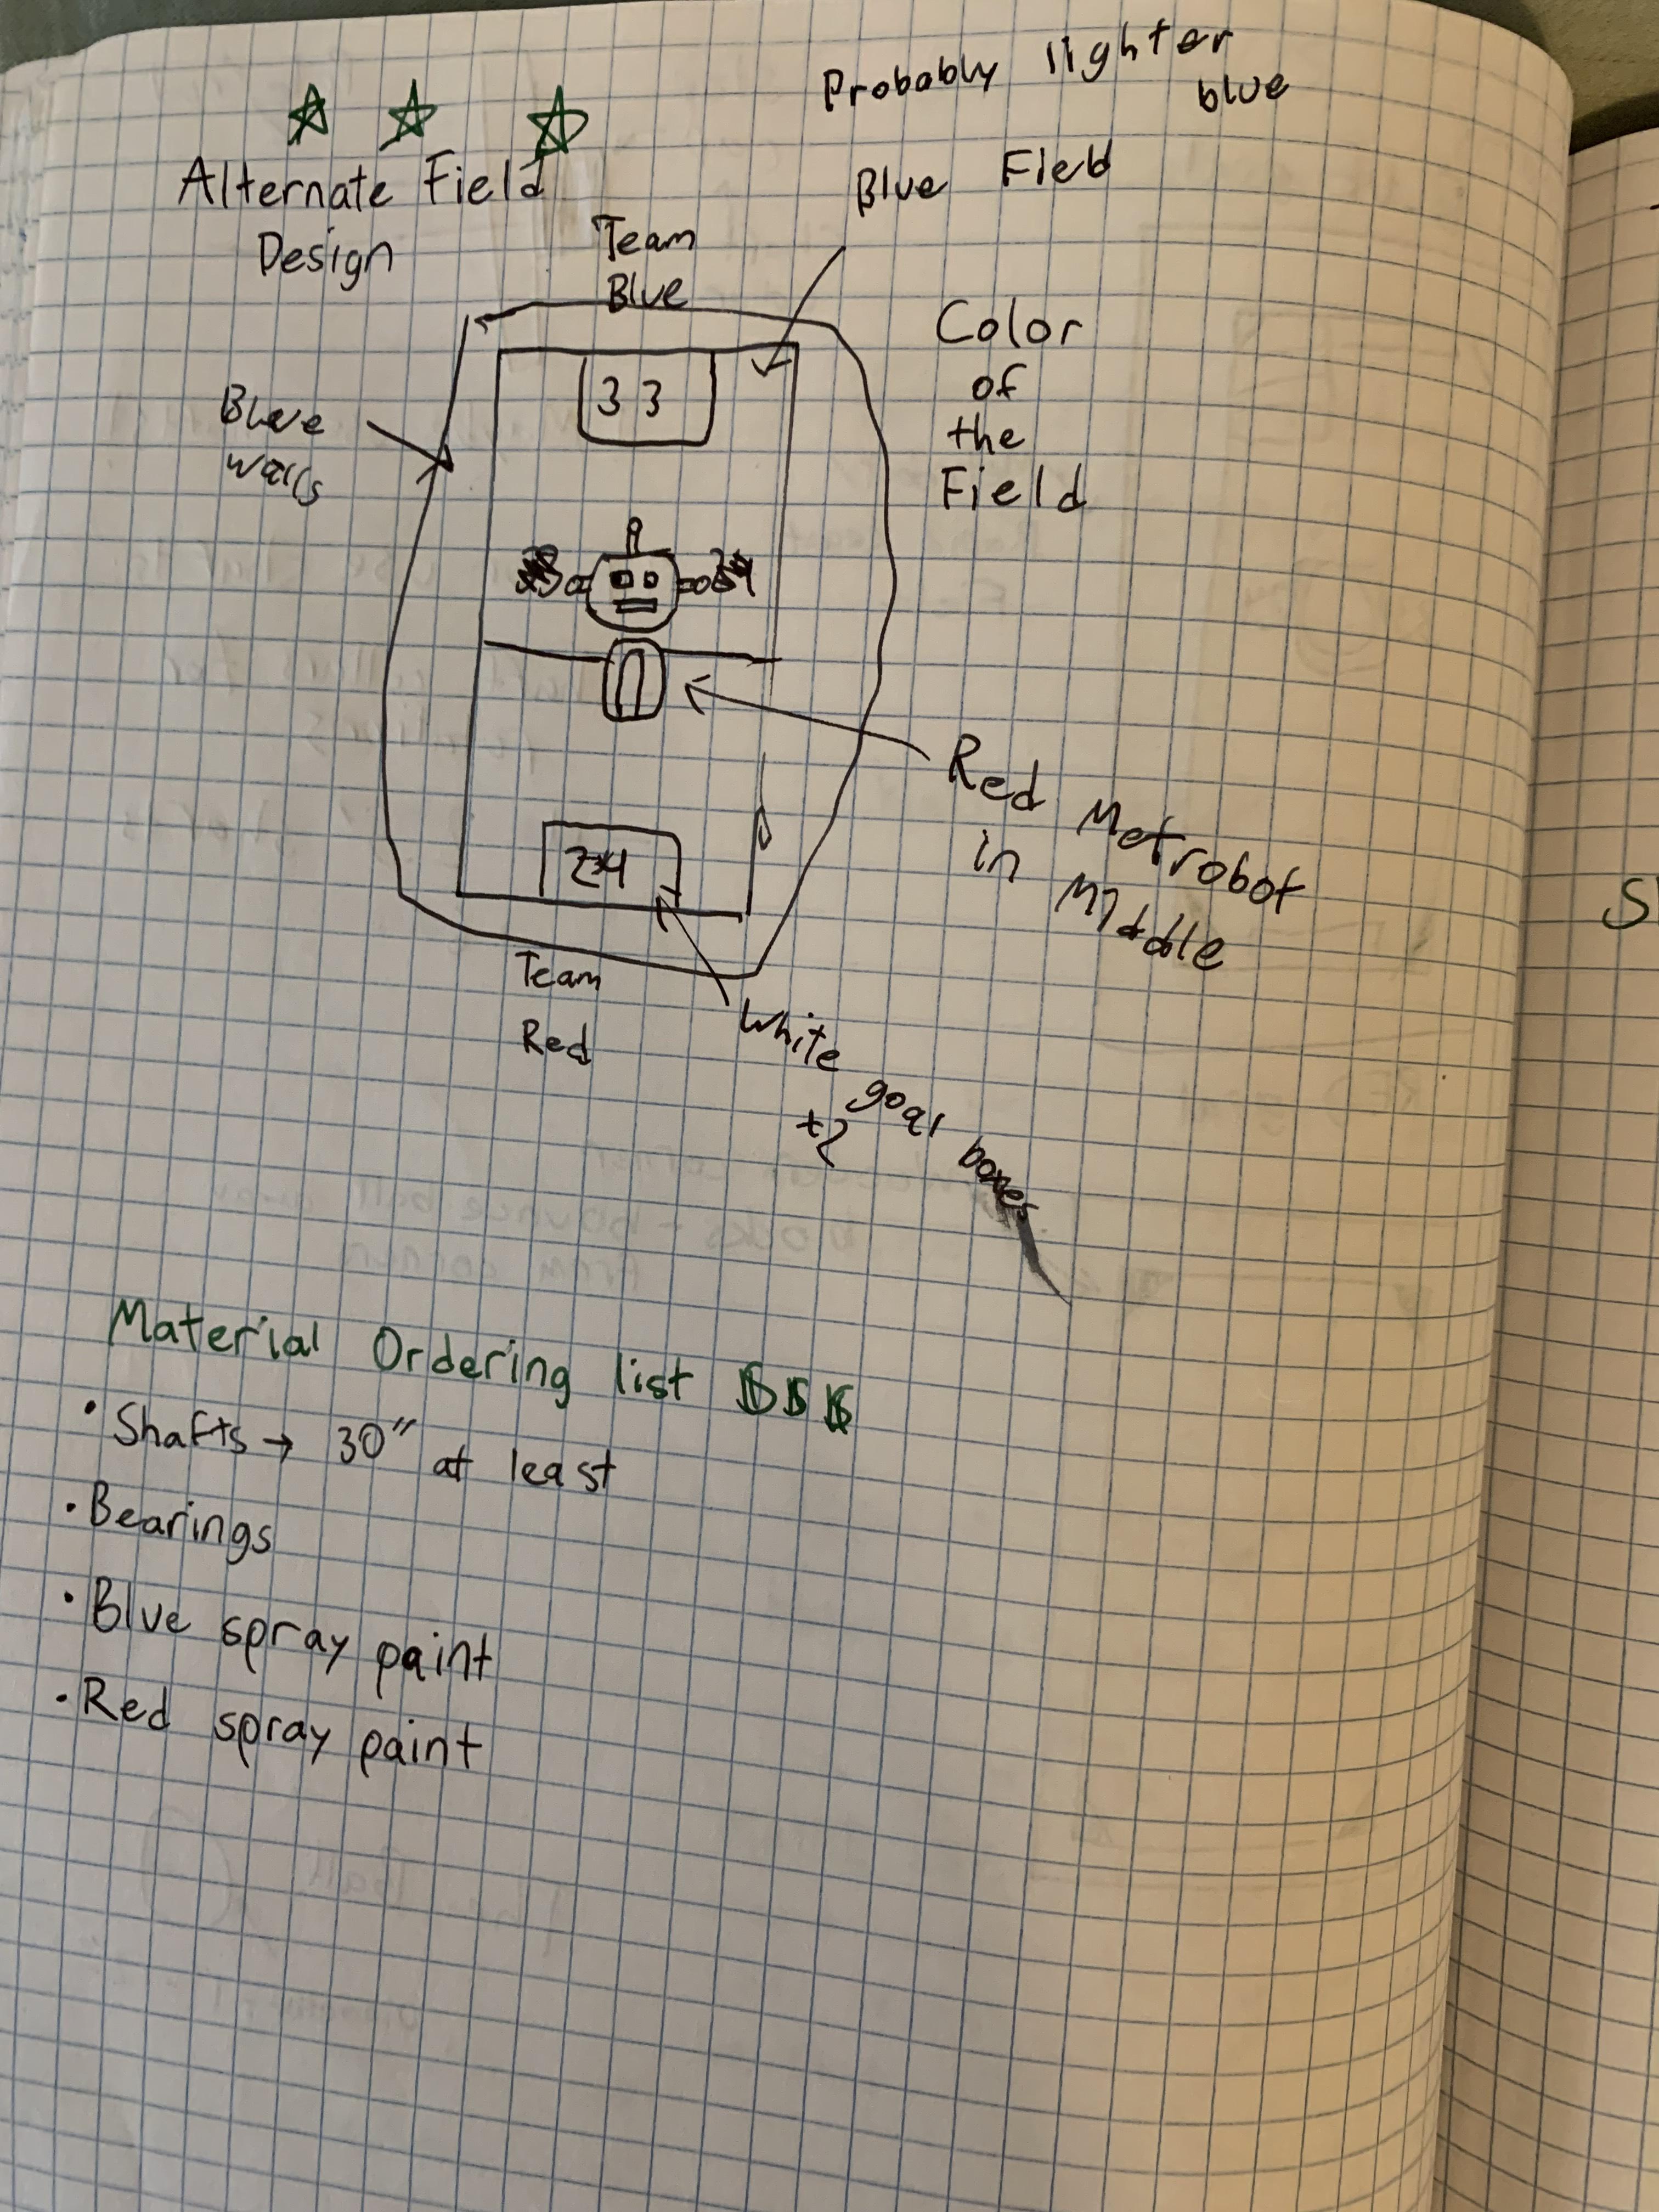 Probably lighter
blue
Alternate Field
Design
Blue Field
Team
Blue
Color
of
the
Field
33
Blue
walls
Red Metrobot
in Middle
24
Team
Red
White goal boxes
+2
Material Ordering list $$$
• Shafts → 30" at least
• Bearings
• Blue spray paint
• Red spray paint